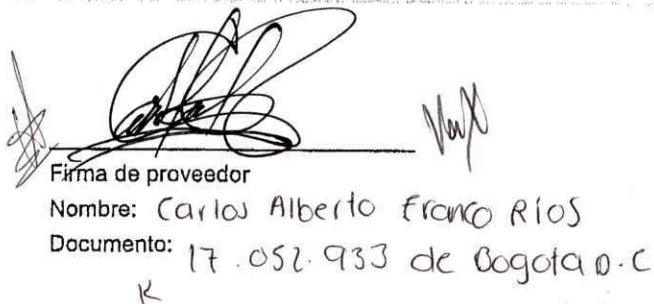 Firma de proveedor
Nombre: Carlos Alberto Franco Ríos
Documento: 17.052.933 de Bogota D.C
K